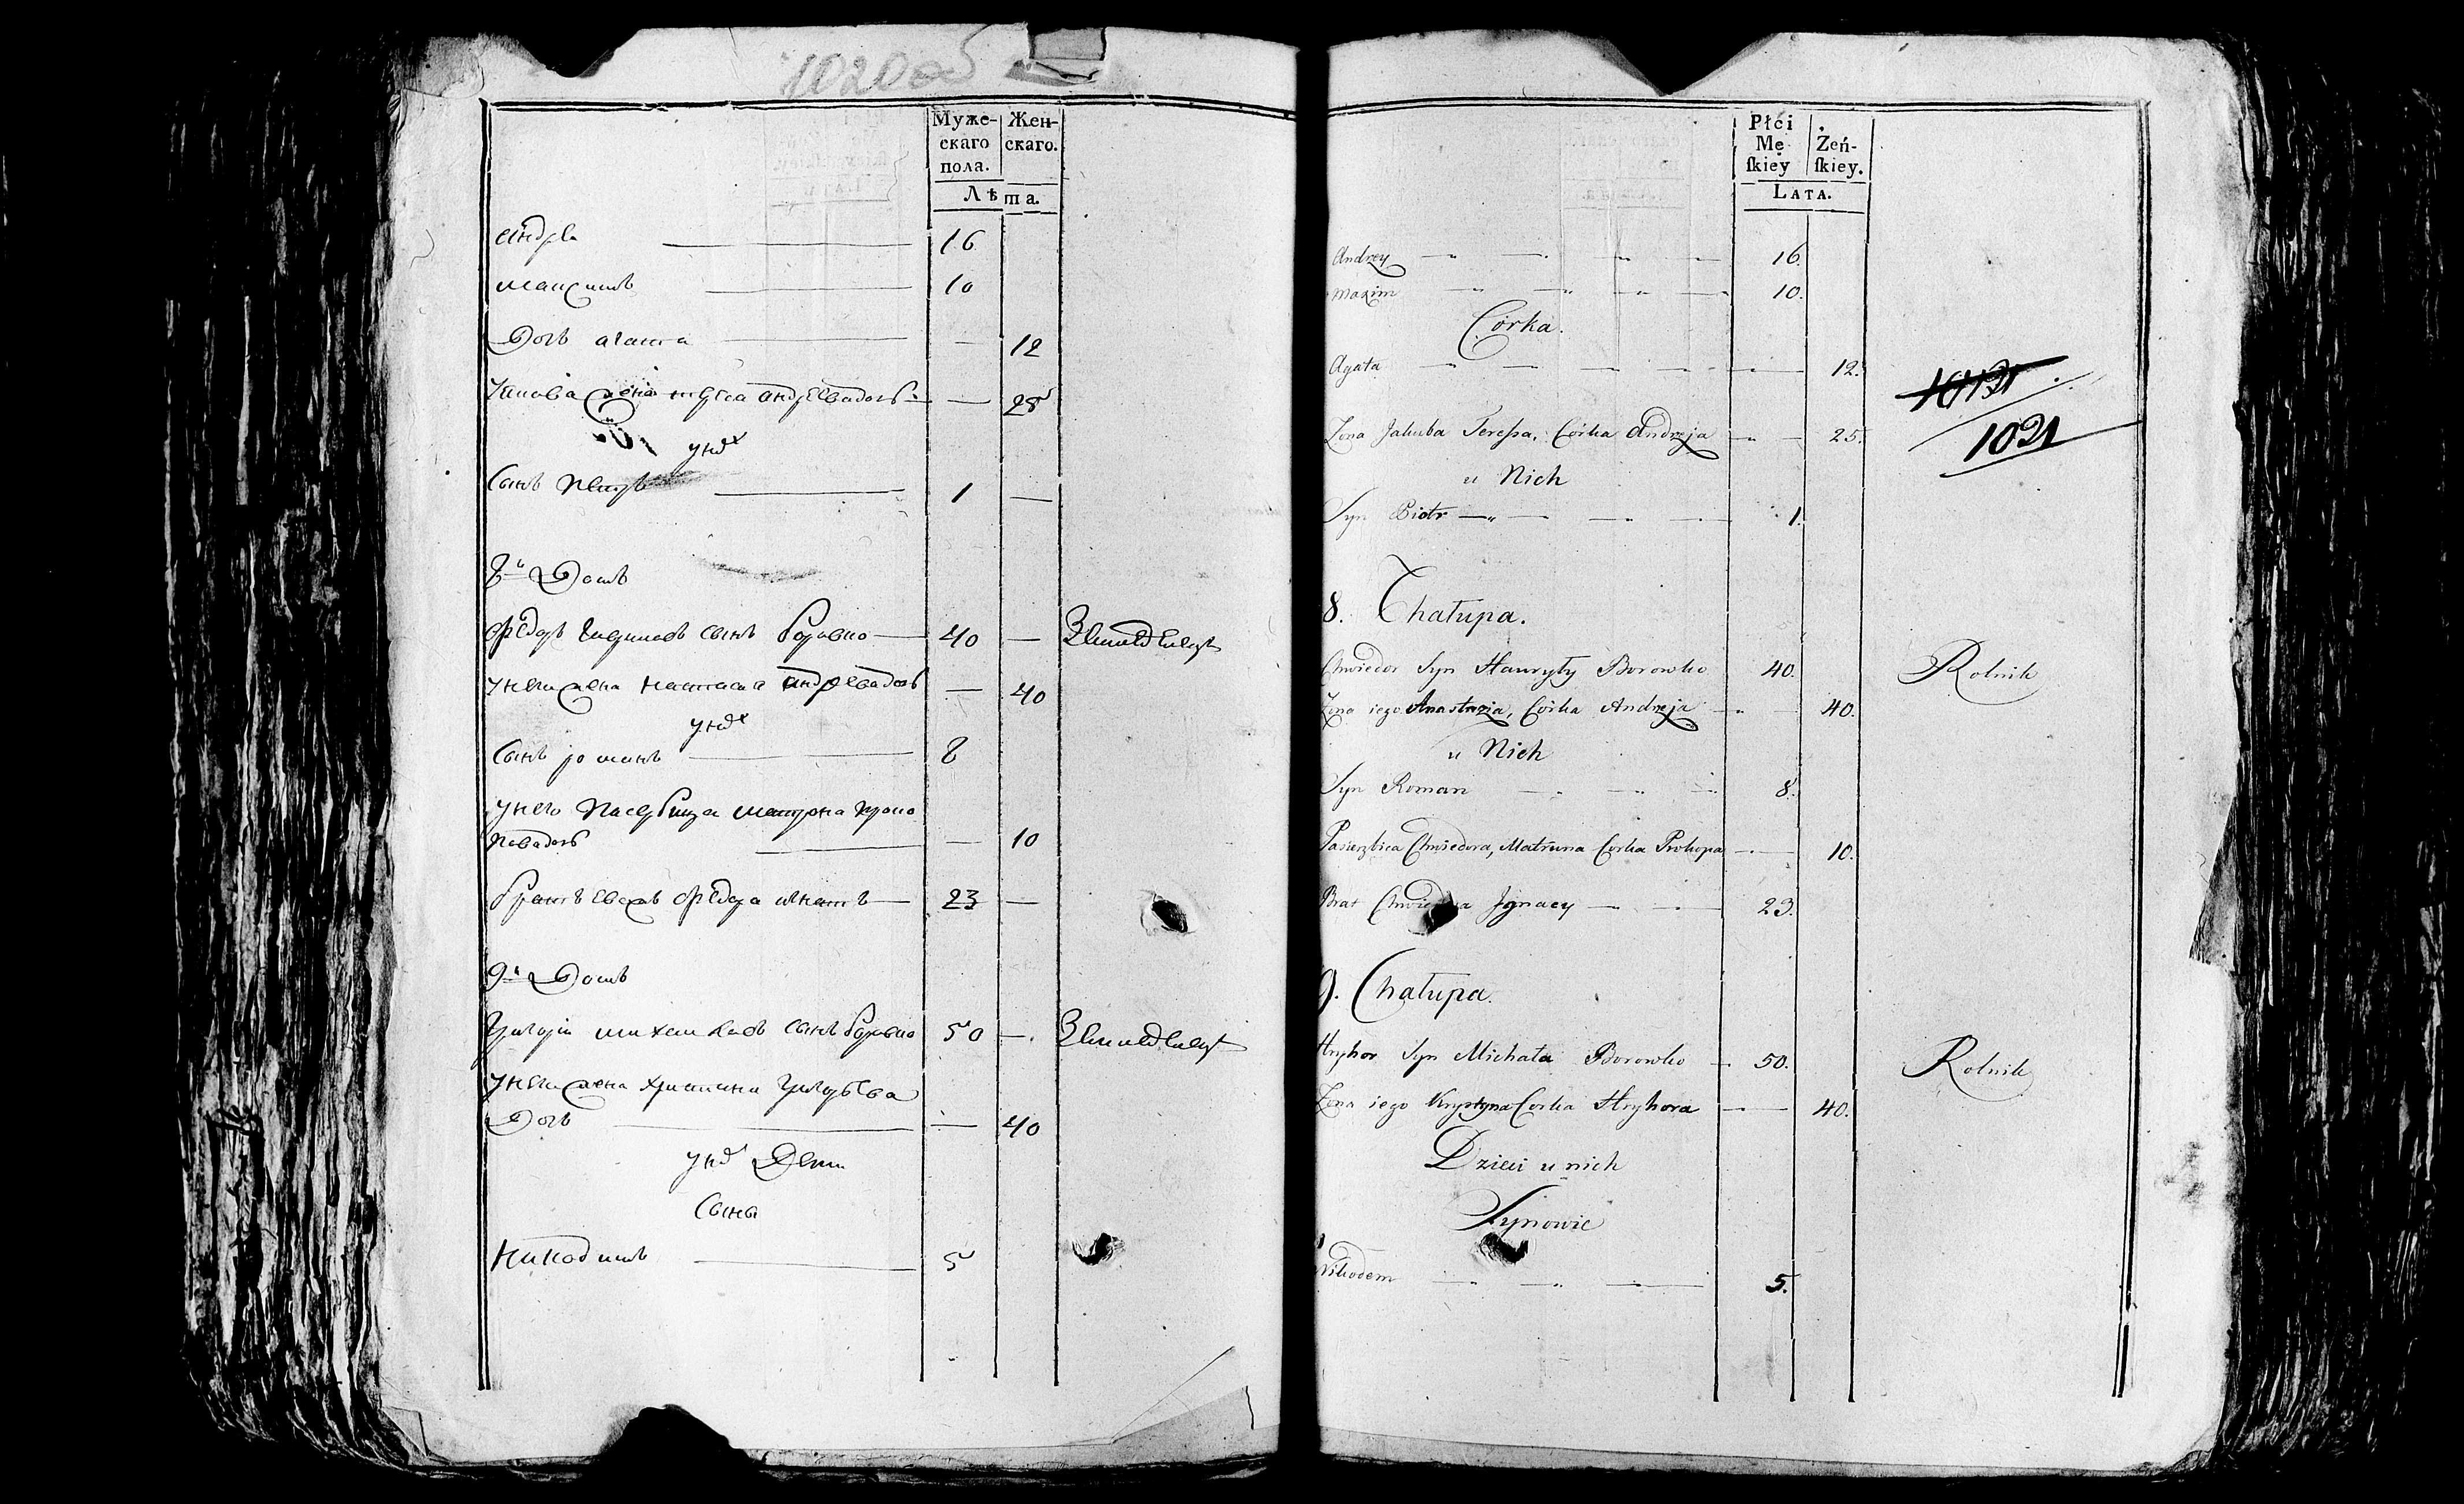 1020об
Муже- Жен-
скаго скаго.
пола.
Лѣта.
Андрей 16
Максимъ 10
Дочь агата — 12
Якова жена тереса андреева дочь — 25
у них
Сынъ Петръ 1 —
8й Домъ
Федоръ Гавриловъ сынъ Боровко — 40 — Земледѣлецъ
у него жена настасья андреева дочь — 40
у них
Сынъ романъ 8
у него Пасербица матрона проко
пова дочь — 10
братъ сего федора игнатъ — 23 —
9й Домъ
Григорий михайловъ сынъ боровко 50 — Земледѣлецъ
у него жена христина григорьева
Дочь — 40
у них Дети
Сыны
Никодимъ 5
Płći
Mę Żeń-
ſkiey ſkiey.
LATA.
Andrzey 16.
Maxim 10.
Córka.
Agata 12.
1021
Żona Jakuba Teressa, Córka Andrzeja 25.
u Nich
Syn Piotr 1.
8. Chałupa.
Chwiedor Syn Hawryły Borowko 40. Rolnik
Żona iego Anastazia, Córka Andrzeja 40.
u Nich
Syn Roman 8.
Pasierzbica Chwiedora, Matruna Corka Prokopa 10.
Brat Chwiedora Jgnacy 23.
9. Chałupa.
Hryhor Syn Michała Borowko 50. Rolnik
Żona iego Krystyna Corka Hryhora 40.
Dzieci u nich
Synowie
Nikodem 5.